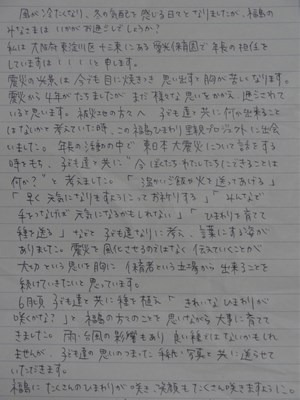 風が冷たくなり、冬の気配を感じる日々となりましたが、福島の
みなさまはいかがお過ごしでしょうか？
私は大阪府東淀川区十三東にある 保育園で年長の担任を
していますは｜｜｜｜と申します。
震災の光景は今でも目に焼きつき思い出すと胸が苦しくなります。
震災から4年がたちましたが まだ様々な思いをかかえ、過ごされて
いると思います。被災地の方々へ 子ども達と共に何か出来ること
はないかと考えていた時、この福島ひまわり里親プロジェクトに出会
いました。年長の活動の中で 東日本大震災について話をする
時をもち、子ども達と共に"今ぼくたちわたしたちにできることは
何か？"と考えました。「温かいご飯や火を送ってあげる」
「早く元気になりますようにってお祈りする」「みんなで
手をつなげば元気になるかもしれない」「ひまわりを育てて
種を送る」などと 子ども達なりに考え、言葉にする姿が
ありました。震災を風化させるのではなく 伝えていくことが
大切という思いを胸に 保育者という立場から出来ることを
続けていきたいと思っています。
6月頃 子ども達と共に種を植え「きれいなひまわりが
咲くかな？」と 福島の方々のことを思いながら大事に育てて
きました。雨・台風の影響もあり 良い種ではないかもしれ
ませんが、子ども達の思いのつまった手紙・写真と共に送らせて
いただきます。
福島にたくさんのひまわりが咲き、笑顔もたくさん咲きますように。